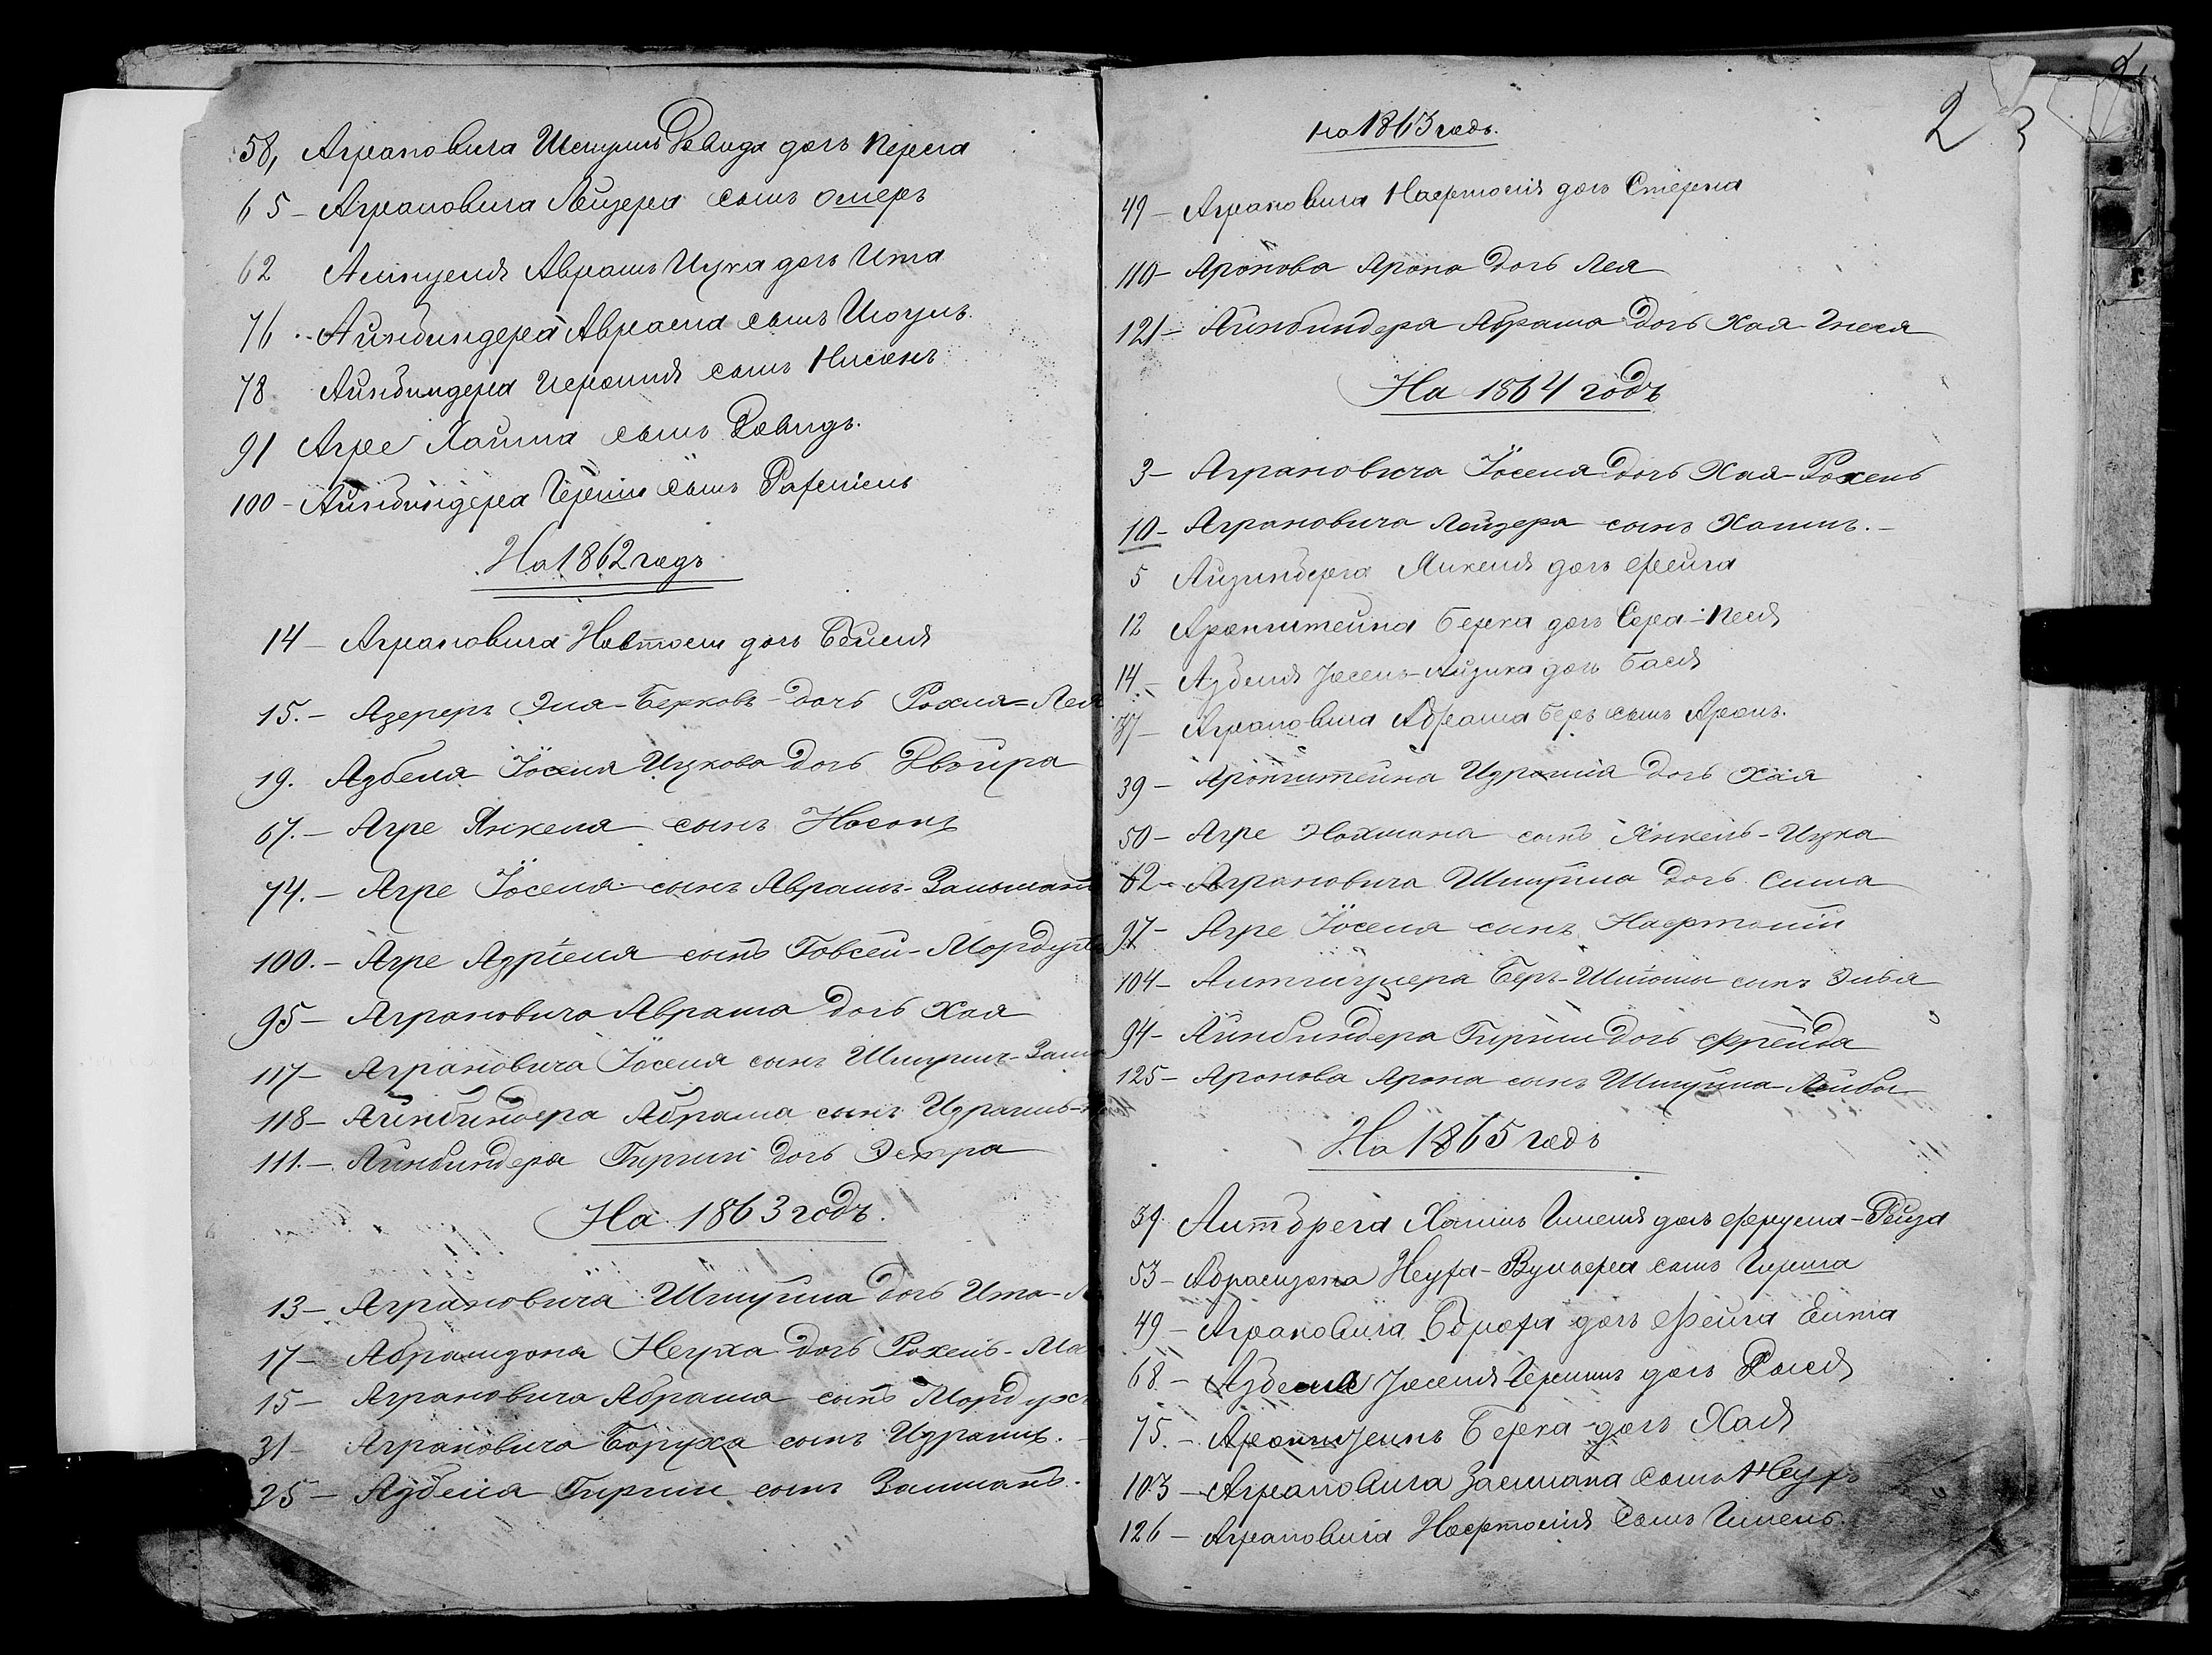 58, Аграновича Шмуил Давида дочь Переля
65 - Аграновича Лейзера сынъ Ошеръ
62 Абрамъ Ицка дочь Ита
76 - Айнбиндера Абрама сынъ
78 Айнбиндера сынъ Нисенъ
91 Агре Хаима сынъ Давидъ.
100 - Айнбиндера Гершъ сынъ
На 1862 годъ
14 - Аграновича Невтоли дочь Бейля
15. - Азереръ Эля-Берковъ дочь Рохля=Лея
19. Азбеля Іоселя Ицкова дочь Двейра
67. - Агре Янкеля сынъ Носонъ
74. - Агре Іоселя сынъ Абрамъ-Зальманъ
100. - Агре Азріеля сынъ Говсей-Мордух
95 - Аграновича Абрама дочь Хая
117 - Аграновича Іоселя сынъ Шмуилъ-Залм
118 - Айнбиндера Абрама сынъ Израиль-
111. - Айнбиндера Гирши дочь Эстра
На 1863 годъ.
13 - Аграновича Шмуила дочь Ита-
17 - Абрамзона Неуха дочь Рохель-Ма
15 - Аграновича Абрама сынъ Мордухъ
31 - Аграновича Боруха сынъ Израиль.
25 - Азбеля Гирши сынъ Залманъ.
2 3
на 1863 годъ.
49 - Аграновича Нафтолія дочь Стерна
110 - Аронова Арона дочь Лея
121 - Айнбиндера Абрама дочь Хая-Гнеся
На 1864 годъ
3 - Аграновича Іоселя дочь Хая-Рохель
10 - Аграновича Лейзера сынъ Хаимъ. -
5 Айзинберга Янкеля дочь Фейга
12 Аронштейна Берка дочь Сера-Песя
14. - Азбеля Іосель-Айзика дочь Бася
37 - Аграновича Абрама Беръ сынъ Аронъ.
39 - Аронштейна Израиля дочь Хая
50 - Агре Нохмана сынъ Янкель-Ицка
62 - Аграновича Шмуила дочь Сима
97 - Агре Іоселя сынъ Нафтолій
104 - Беръ-Шліомы сынъ Элья
94 - Айнбиндера Гирши дочь Фрейда
125 - Аронова Арона сынъ Шмуила-Лейба
На 1865 годъ
39 Хаимъ Гимеля дочь Фрума-Рейза
53 - Абрамзона Неуха-Вульфа сынъ Гирша
49 - Аграновича Боруха дочь Фейга Ента
68 - Азбеля Іоселя Гершъ дочь Рася
75. - Аронштейнъ Берка дочь Хая
103 - Аграновича Залмана сынъ Неухъ
126 - Аграновича Нафтолія сынъ Гимель.